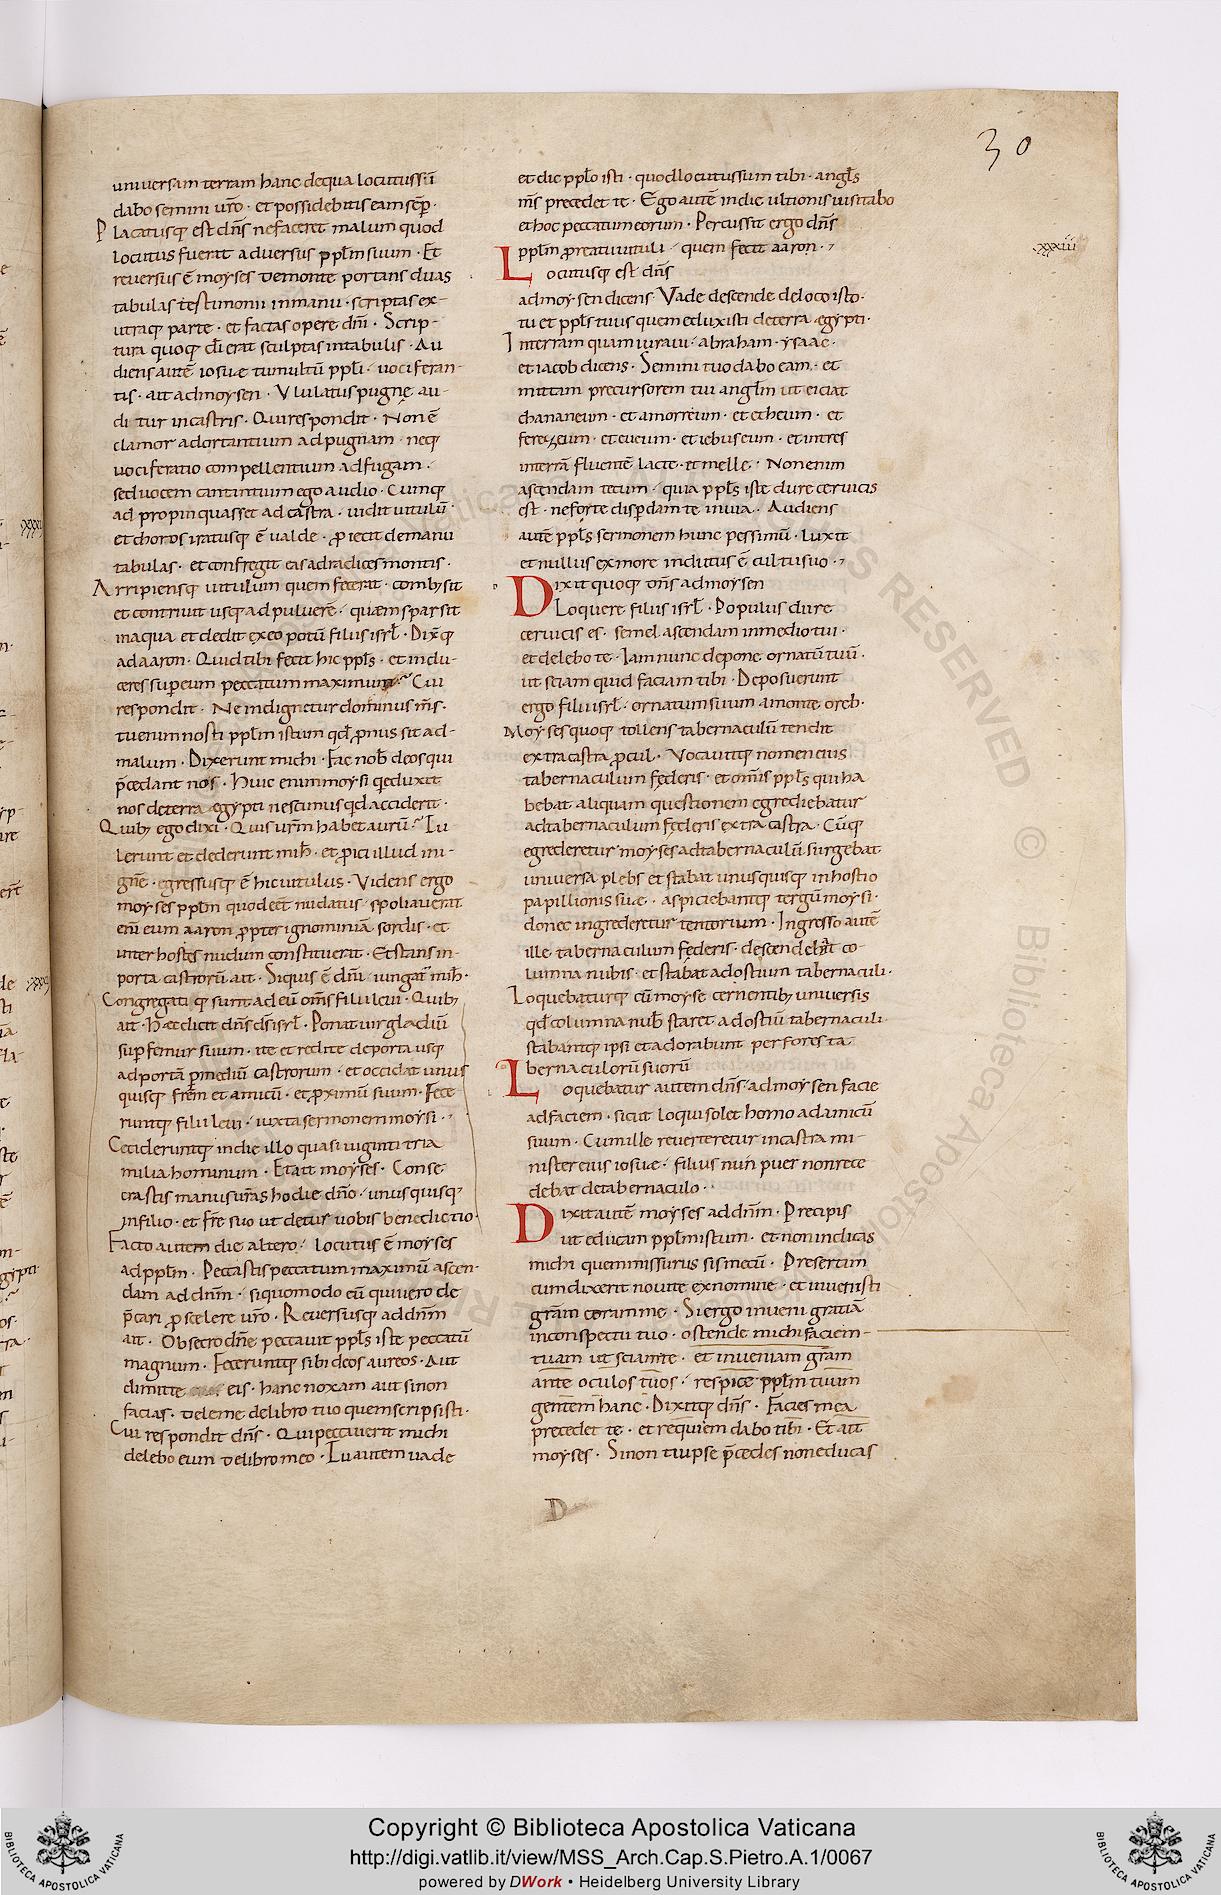 30
universam terram hanc dequa locutussũ
dabo semini urõ · et possidebitis eam semp̲ ·
Placatusq; est dñs nefaceret malum quod
locutus fuerat adversus pplm̃ suum · Et
reversus ẽ moyses demonte portans duas
tabulas testimonii inmanu · scriptas ex-
utraq; parte · et factas opere dñi · Scrip-
tura quoq; di erat sculptas intabulis · Au
diens autẽ iosue tumultũ ppli · vociferan-
tis · ait admoysen · Ululatus pugnę au-
di tur incastris · Qui respondit · Non ẽ
clamor adortantium adpugnam · neq;
vociferatio compellentium adfugam ·
sed vocem cantintium ego audio · Cumq;
ad propinquasset ad castra · vidit vitulũ ·
et choros iratusq; ẽ valde · p̲iecit demanu
tabulas · et confregit eas adradices montis ·
Arripiensq; vitulum quem fecerat · combysit
et contrivit usq; adpulverẽ · quam sparsit
inaqua et dedit exeo potũ filiis isrl̃ · Dix̃q;
adaaron · Quid tibi fecit hic ppl̃s · et indu-
ceres super eum peccatum maximum · Cui
respondit · Ne indignetur dominus m̃s ·
tu enim nosti pplm̃ istum qd̃ pronus sit ad-
malum · Dixerunt michi · Fac nob̃ deos qui
p̃cedant nos · Huic enim moysi q; eduxit
nos deterra egypti nescimus qd̃ acciderit ·
Quib; ego dixi · Quis urm̃ habet aurũ · Tu
lerunt et dederunt mih̃ · et p̲ieci illud in i-
gnẽ · egressusq; ẽ hic vitulus · Videns ergo
moyses pplm̃ quod eẽt nudatus · spoliaverat
enĩ eum aaron propter ignominiã sordis · et
inter hostes nudum constituerat · Et stans in-
porta castrorũ ait · Siquis ẽ dñi · iungat̃ mih̃ ·
Congregati q; sunt ad eũ om̃s filii levi · Quib;
ait · Hęc dicit dñs ds̃ isrl̃ · Ponat vir gladiũ
sup̲ femur suum · ite et redite deporta usq;
adportã p̲ mediũ castrorum · et occidat unus
quisq; frẽm et amicũ · et p̲ximũ suum · Fece
runtq; filii levi · iuxta sermonem moysi ·
Cecideruntq; indie illo quasi viginti tria
milia hominum · Et ait moyses · Conse
crastis manus uras̃ hodie dño · unusquisq;
in filio · et fr̃e suo ut detur vobis benedictio ·
Facto autem die altero · locutus ẽ moyses
ad pplm̃ · Peccastis peccatum maximũ ascen-
dam ad dñm · siquomodo eũ quivero de
p̃cari p̲ scelere urõ · Reversusq; ad dñm
ait · Obsecro dñe peccavit ppl̃s iste peccatũ
magnum · Feceruntq; sibi deos aureos · Aut
dimitte eis · hanc noxam aut sinon
facias · dele me delibro tuo quem scripsisti ·
Cui respondit dñs · Qui peccaverit michi
delebo eum delibro meo · Tu autem vade
et duc pplõ isti · quod locutus sum tibi · angl̃s
m̃s precedet te · Ego autẽ indie ultionis visitabo
et hoc peccatum eorum · Percussit ergo dñs
pplm̃ p̲ reatu vituli · quem fecit aaron ·
xxxiii
Locutusq; est dñs
admoy·sen dicens · Vade descende deloco isto ·
tu et ppl̃s tuus quem eduxisti deterra egypti ·
Interram quam iuravi · abraham · ysaac ·
et iacob dicens · Semini tuo dabo eam · et
mittam precursorem tui anglm̃ ut eiciat
chananeum · et amorreum · et etheum · et
ferezeum · et eveum · et iebuseum · et intres
interrã fluentẽ lacte · et melle · Non enim
ascendam tecum · quia ppl̃s iste dure cervicis
est · neforte disp̲dam te invia · Audiens
autẽ ppl̃s sermonem hunc pessimũ · luxit
et nullus exmore indutus ẽ cultu suo ·
Dixit quoq; dñs admoysen
Loquere filiis isrl̃ · Populus dure
cervicis es · semel ascendam inmedio tui ·
et delebo te · Iam nunc depone ornatũ tuũ ·
ut sciam quid faciam tibi · Deposuerunt
ergo filii isrl̃ · ornatum suum amonte oreb ·
Moyses quoq; tollens tabernaculũ tendit
extra castra p̲cul · Vocavitq; nomen eius
tabernaculum fęderis · et om̃is ppl̃s qui ha
bebat aliquam questionem egrediebatur
adtabernaculum fęderis extra castra · Cũq;
egrederetur moyses adtabernaculũ surgebat
universa plebs et stabat unusquisq; inhostio
papillionis sui · aspiciebantq; tergũ moysi ·
donec ingrederetur tentorium · Ingresso autẽ
ille tabernaculum fęderis · descendebat co-
lumna nubis · et stabat adostium tabernaculi ·
Loquebaturq; cũ moyse cernentib; universis
qd̃ columna nub̃ staret adostiũ tabernaculi ·
stabantq; ipsi et adorabant per fores ta
bernaculorũ suorũ
Loquebatur autem dñs · admoysen facie
adfaciem · sicut loqui solet homo adamicũ
suum · Cum ille reverteretur incastra mi-
nister eius iosue · filius nun puer non rece
debat detabernaculo ·
Dixit autẽ moyses ad dñm · Precipis
ut educam pplm̃ istum · et non indicas
michi quem missurus sis mecũ · Presertim
cum dixerit novi te exnomine · et invenisti
gram̃ coram me · Si ergo inveni gratiã
inconspectu tuo · ostende michi faciem-
tuam ut sciam te · et inveniam gram̃
ante oculos tuos · respice pplm̃ tuum
gentem hanc · Dixitq; dñs · Facies mea
precedet te · et requiem dabo tibi · Et ait
moyses · Sinon tu ipse p̃cedes non educas
D
Copyright © Biblioteca Apostolica Vaticana
http://digi.vatlib.it/view/MSS_Arch.Cap.S.Pietro.A.1/0067
powered by DWork • Heidelberg University Library